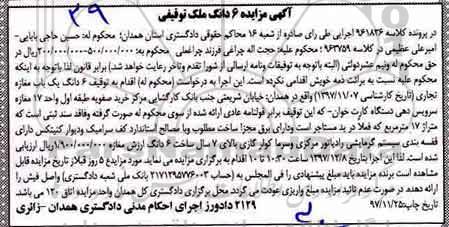 آگهی مزایده ۶ دانگ ملک توقیفی
۳۹
در پرونده کلاسه ۹۶۱۸۳۶ اجرایی طی رای صادره از شعبه ۱۶ محاکم حقوقی دادگستری استان همدان؛ محکوم له: حسین حاجی بابایی-
امیرعلی عظیمی در کلاسه ۹۶۳۷۵۹ ؛ محکوم علیه: حجت اله چراغی فرزند چراغعلی محکوم به: ۵۰۰/۰۰۰/۰۰۰-۲۰۰/۰۰۰/۰۰۰ ریال در
حق محکوم له ونیم عشردولتی (البته باتوجه به توقیفات ونامه ارسالی از شورا تقدم وتاخر رعایت خواهد شد.) برابر قانون لذا باتوجه به اینکه
محکوم علیه نسبت به برائت ذمه خویش اقدامی نکرده است. این اجرا به درخواست (محکوم له) اقدام به توقیف ۶ دانگ یک باب مغازه
تجاری (تاریخ کارشناسی ۱۳۹۷/۱۱/۰۷) واقع در همدان: خیابان شریعتی جنب بانک کارگشایی مرکز خرید صفویه طبقه اول واحد ۱۷ مغازه
سرویس دهی دستگاه کارت خوان- که این توقیف برابر قولنامه عادی ارائه شده از سوی محکوم له صورت گرفته وفاقد سند ثبتی است که
متراژ ۱۷ مترمربع که فعلا در ید مستاجر است ودارای برق مجزا ساخت مطلوب وبا مصالح استاندارد کف سرامیک ودیوار کنیتکس دارای
قفسه بندی سیستم گرمایشی رادیاتور مرکزی وسرما کولر گازی بالای ۷ سال ساخت ۶ دانگ ارزش مغازه ۱/۹۰۰/۰۰۰/۰۰۰ ریال ارزیابی
شده است. لذا این اجرا بتاریخ ۱۳۹۷/۱۲/۸ ساعت ۱۰:۳۰ تا ۱۰ اقدام به برگزاری مزایده می نماید. مورد مزایده ۵ روز قبلاز تاریخ مزایده قابل
مشاهده است برنده مزایده باید مبلغ پیشنهادی را فی المجلس به (حساب ۲۱۷۱۲۹۵۷۷۶۰۰۳ بانک ملی شعبه دادگستری) واصل فیش را
ارائه دهنده در صورت عدم تائید مزایده مبلغ واریزی عودت می گردد. محل برگزاری دادگستری کل همدان واحد مزایده اتاق ۱۲۰ می باشد.
تاریخ چاپ: ۹۷/۱۱/۲۵
۲۱۲۹ دادورز اجرای احکام مدنی دادگستری همدان -زائری